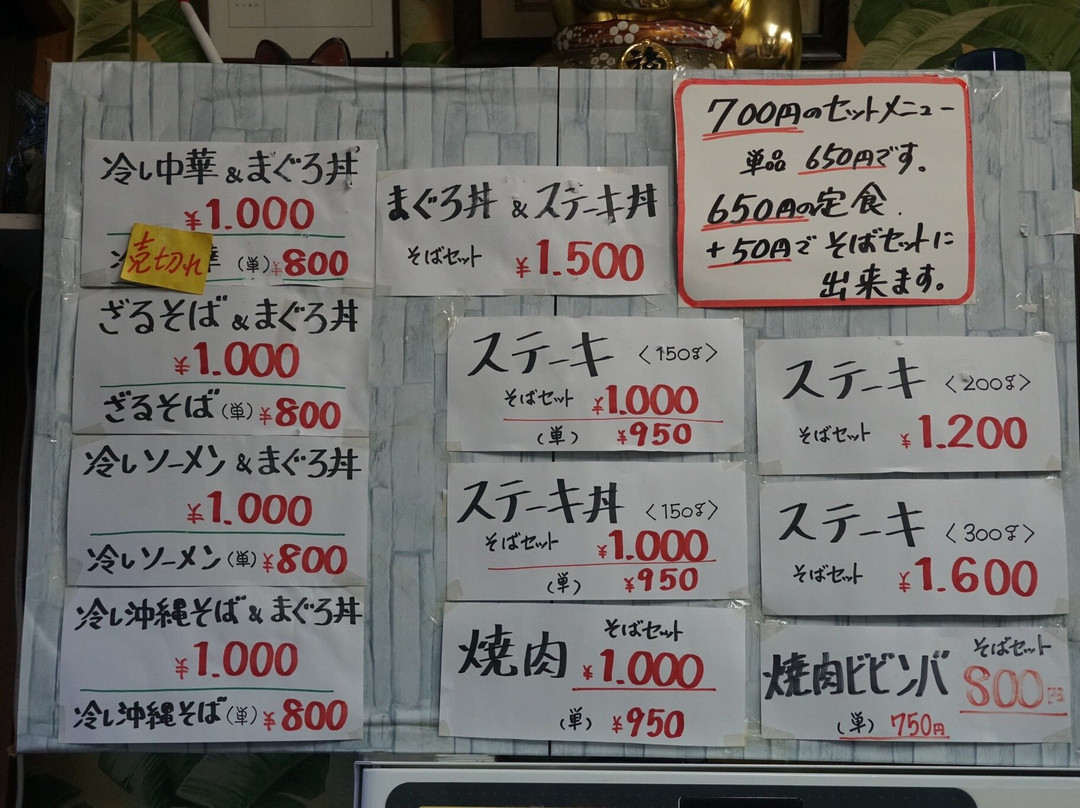 冷し中華&まぐろ丼
¥1.000
売切れ
(単)¥800
ざるそば&まぐろ丼
¥1.000
ざるそば(単)¥800
冷しソーメン&まぐろ丼
¥1.000
冷しソーメン(単)¥800
冷し沖縄そば&まぐろ丼
¥1.000
冷し沖縄そば(単)¥800
まぐろ丼&ステーキ丼
そばセット ¥1.500
700円のセットメニュー
単品 650円です。
650円の定食.
+50円でそばセットに
出来ます。
ステーキ〈150g〉
そばセット ¥1.000
(単) ¥950
ステーキ丼〈150g〉
そばセット ¥1.000
(単) ¥950
焼肉 そばセット
¥1.000
(単) ¥950
ステーキ〈200g〉
そばセット ¥1.200
ステーキ〈300g〉
そばセット ¥1.600
焼肉ビビンバ そばセット
800円
(単) 750円